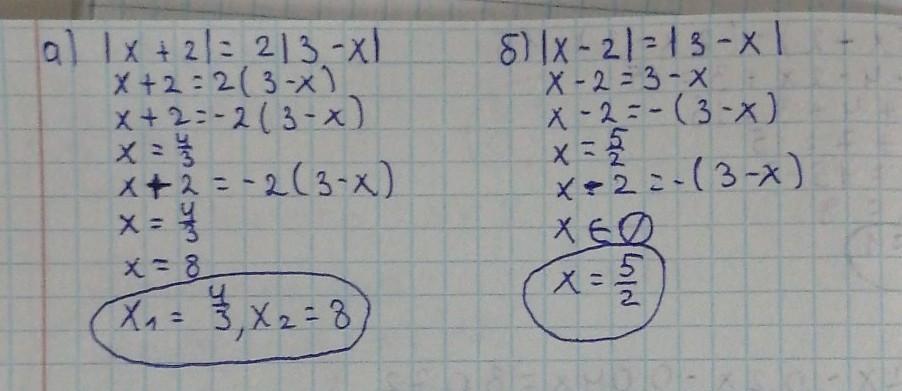 а) |x + 2| = 2|3 - x|
x + 2 = 2(3 - x)
x + 2 = -2(3 - x)
x = 4/3
x + 2 = -2(3 - x)
x = 4/3
x = 8
x₁ = 4/3, x₂ = 8
б) |x - 2| = |3 - x|
x - 2 = 3 - x
x - 2 = -(3 - x)
x = 5/2
x - 2 = -(3 - x)
x ∈ ∅
x = 5/2